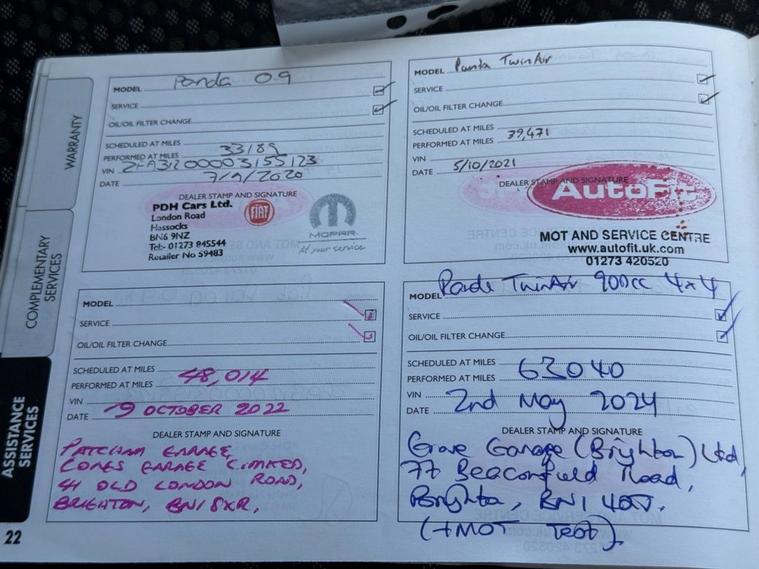 WARRANTY
COMPLEMENTARY
SERVICES
ASSISTANCE
SERVICES
22
MODEL Panda 0.9
SERVICE
OIL/OIL FILTER CHANGE
SCHEDULED AT MILES
PERFORMED AT MILES 33189
VIN ZFA31200003155123
DATE 7/9/2020
DEALER STAMP AND SIGNATURE
PDH Cars Ltd.
London Road
Hassocks
BN6 9NZ
Tel:- 01273 845544
Retailer No 59483
FIAT
MOPAR
At your service
MODEL Panda TwinAir
SERVICE
OIL/OIL FILTER CHANGE
SCHEDULED AT MILES
PERFORMED AT MILES 39,471
VIN
DATE 5/10/2021
DEALER STAMP AND SIGNATURE
AutoFit
MOT AND SERVICE CENTRE
www.autofit.uk.com
01273 420520
MODEL
SERVICE
OIL/OIL FILTER CHANGE
SCHEDULED AT MILES
PERFORMED AT MILES 48,014
VIN
DATE 9 OCTOBER 2022
DEALER STAMP AND SIGNATURE
PATCHAM GARAGE,
CONES GARAGE LIMITED,
41 OLD LONDON ROAD,
BRIGHTON, BN1 8XR,
MODEL Panda TwinAir 900cc 4x4
SERVICE
OIL/OIL FILTER CHANGE
SCHEDULED AT MILES
PERFORMED AT MILES 63040
VIN
DATE 2nd May 2024
DEALER STAMP AND SIGNATURE
Grove Garage (Brighton) Ltd,
77 Beaconsfield Road,
Brighton, BN1
(+MOT Test)